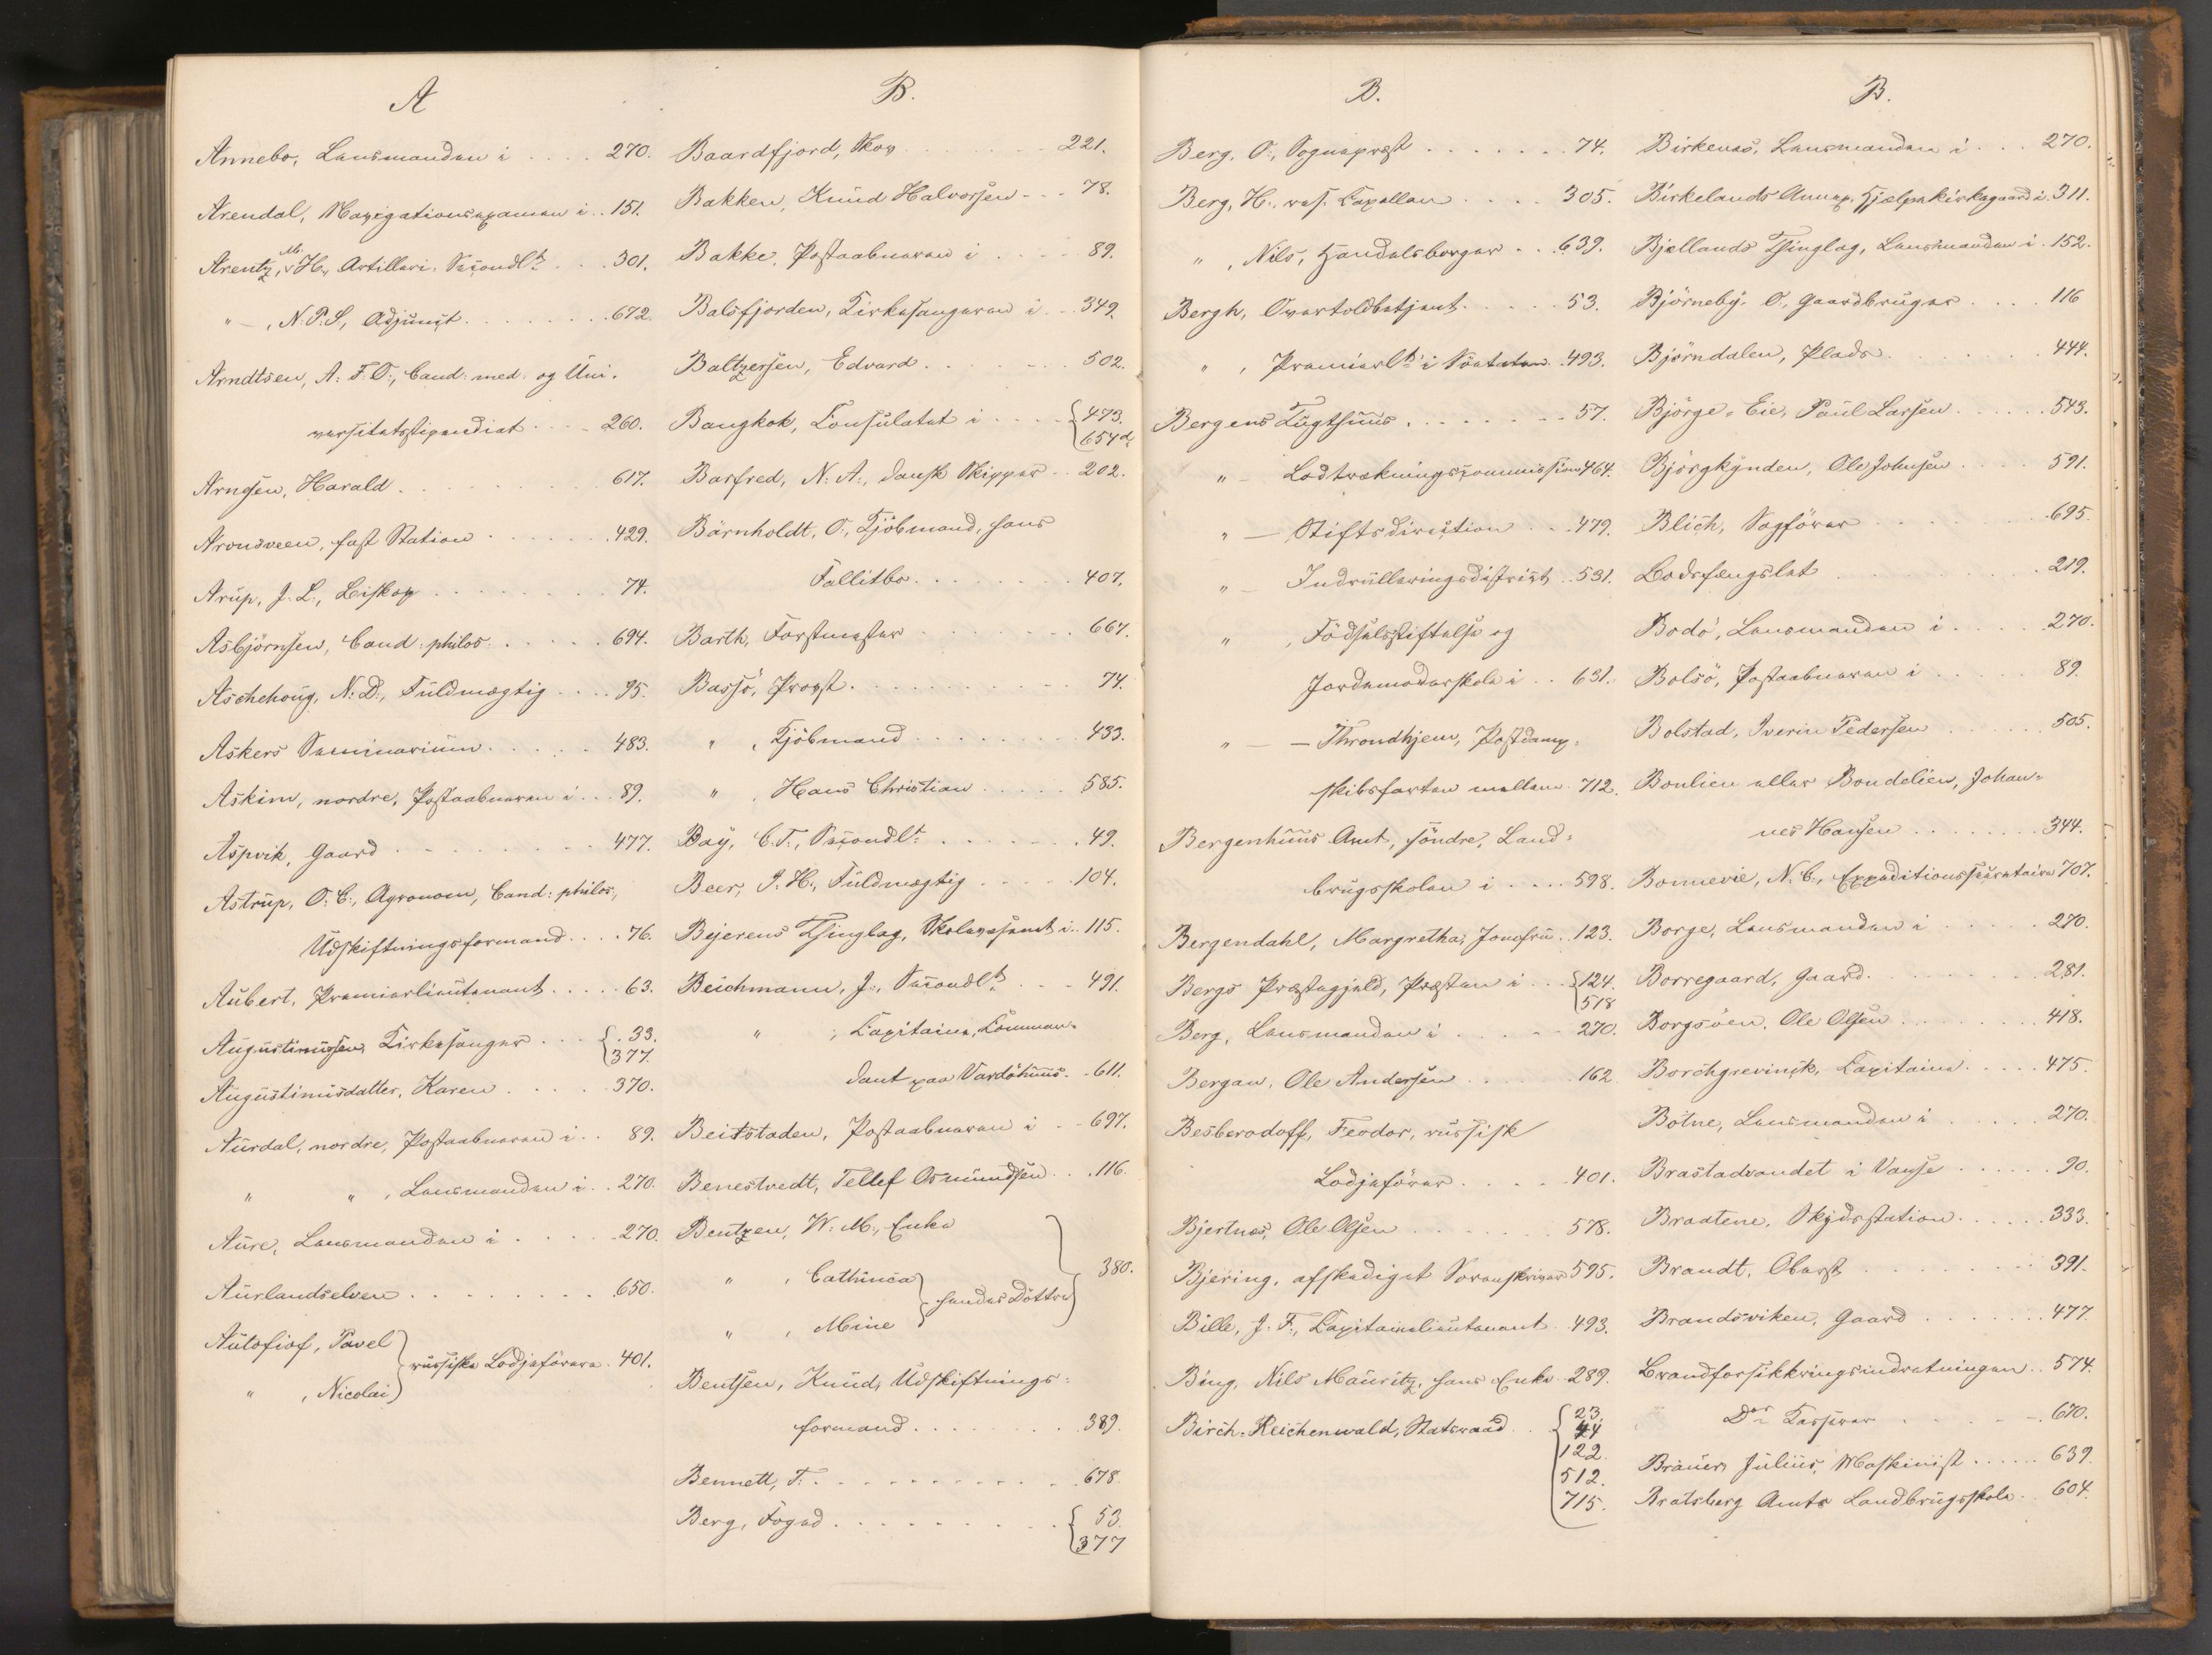 A
Annebo, Lensmanden i .... 270.
Arendal, Navigationsexamen i .. 151.
Arentz, M. H., Artilleri-Secondlt. ... 301.
" — , N. P. S., Adjunct ....... 672.
Arndtsen, A. F. O., Cand: med. og Uni-
versitetsstipendiat .... 260.
Arngsen, Harald ....... 617.
Aronsveen, fast Station ...... 429.
Arup, J. L., Biskop ........ 74.
Asbjörnsen, Cand: philos. ..... 694.
Aschehoug, N. D., Fuldmægtig .... 95.
Askers Seminarium ..... 483.
Askim, nordre, Postaabneren i ... 89.
Aspvik, Gaard ......... 477.
Astrup, O. C., Agronom, Cand: philos.,
Udskiftningsformand .... 76.
Aubert, Premierlieutenant .... 63.
Augustinussen, Kirkesanger ... { 33.
377.
Augustinusdatter, Karen .... 370.
Aurdal, nordre, Postaabneren i .. 89.
" " , Lensmanden i .. 270.
Aure, Lensmanden i ..... 270.
Aurlandselven ........ 650.
Autofiof, Pavel
} russiske Lodjeförere . 401.
" , Nicolai
B.
Baardfjord, Skov ....... 221.
Bakken, Knud Halvorsen ... 78.
Bakke, Postaabneren i .... 89.
Balsfjorden, Kirkesangeren i .. 349.
Baltzersen, Edvard ....... 502.
Bangkok, Consulatet i .... { 473.
654d.
Barfred, N. A., dansk Skipper .. 202.
Bärnholdt, O., Kjöbmand, hans
Fallitbo ........ 407.
Barth, Forstmester ....... 667.
Bassö, Provst ......... 74.
" , Kjöbmand ........ 433.
" , Hans Christian ..... 585.
Bay, C. T., Secondlt. ...... 49.
Beer, J. H., Fuldmægtig ..... 104.
Bejerens Thinglag, Skolevæsenet i .. 115.
Beichmann, J., Secondlt. ... 491.
" , Capitaine, Comman-
dant paa Vardöhuus .. 611.
Beitstaden, Postaabneren i .. 697.
Benestvedt, Tellef Osmundsen ... 116.
Bentzen, W. M., Enke
" , Cathinca
} hendes Döttre } 380.
" , Mine
Bentsen, Knud, Udskiftnings-
formand ........ 389.
Bennett, T. .......... 678.
Berg, Foged .......... { 53.
377
B.
Berg, O., Sognepræst ....... 74.
Berg, H., res. Capellan .... 305.
" , Nils, Handelsborger .. 639.
Bergh, Overtoldbetjent ..... 53.
" , Premierlt. i Söetaten .. 493.
Bergens Tugthuus ....... 57.
" — Lodtrækningscommission 464.
" — Stiftsdirection ... 479.
" — Indrulleringsdistrict .. 531.
" , Födselsstiftelse og
Jordemoderskole i .. 631.
" — — Throndhjem, Postdamp-
skibsfarten mellem . 712.
Bergenhuus Amt, söndre, Land-
brugsskolen i .... 598.
Bergendahl, Margretha, Jomfru .. 123.
Bergs Præstegjeld, Præsten i ... { 124.
518
Berg, Lensmanden i ..... 270.
Bergan, Ole Andersen ..... 162
Besberodoff, Feodor, russisk
Lodjeförer ..... 401.
Bjertnæs, Ole Olsen ....... 578.
Bjering, afskediget Sorenskriver 595.
Bille, J. F., Capitainelieutenant . 493.
Bing, Nils Mauritz, hans Enke . 289.
Birch-Reichenwald, Statsraad .. { 23.
44
122.
512.
715.
B.
Birkenæs, Lensmanden i ... 270.
Birkelands Annex, Hjælpekirkegaard i 311.
Bjellands Thinglag, Lensmanden i . 152.
Björneby, O., Gaardbruger .... 116
Björndalen, Plads ....... 444.
Björge-Eie, Paul Larsen ..... 543.
Björgkynden, Ole Johnsen .... 591.
Blich, Sagförer ........ 695.
Bodsfængslet ......... 219.
Bodö, Lensmanden i ..... 270.
Bolsö, Postaabneren i ..... 89.
Bolstad, Iverin Pedersen ..... 505.
Bonlien eller Bondelien, Johan-
nes Hansen ........ 344.
Bonnevie, N. C., Expeditionssecretaire 707.
Borge, Lensmanden i ..... 270.
Borregaard, Gaard ........ 281.
Borgsöen, Ole Olsen ....... 418.
Borchgrevinck, Capitaine ..... 475.
Botne, Lensmanden i ..... 270.
Brastadvandet i Vanse ..... 90.
Braatene, Skydsstation ...... 333.
Brandt, Oberst ........ 391.
Brandsviken, Gaard ....... 477.
Brandforsikkringsindretningen .. 574.
Do Kasserer ...... 670.
Bräuer, Julius, Maskinist ..... 639.
Bratsberg Amts Landbrugsskole . 604.